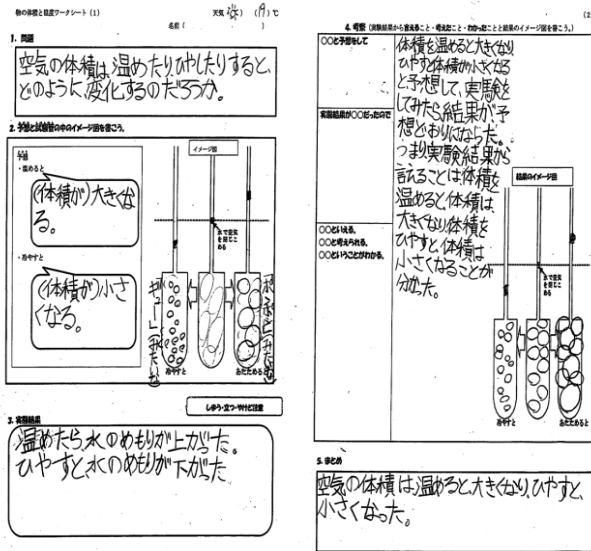 物の体積と温度ワークシート（1）
天気（　）（19）℃
名前（
1. 問題
空気の体積は、温めたりひやしたりすると、
どのように、変化するのだろうか。
2. 予想と試験管の中のイメージ図を書こう。
予想
・温めると
(体積が)大きくな
る。
・冷やすと
(体積が)小さ
くなる。
イメージ図
水で空気
を閉じこ
める
ギューーみたいな
冷やすと
あたためると
しぼう・立つ・やけど注意
3. 実験結果
温めたら、水のめもりが上がった。
ひやすと、水のめもりが下がった
(2
4. 考察（実験結果から言えること・考えたこと・わかったことと結果のイメージ図を書こう。）
〇〇と予想をして
実験結果が〇〇だったので
〇〇といえる。
〇〇と考えられる。
〇〇ということがわかる。
体積を温めると大きくなり
ひやすと体積が小さくなる
と予想して、実験を
してみたら結果が、予
想どおりにならった。
つまり実験結果から
言えることは、体積を
温めると、体積は、
大きくなり、体積を
ひやすと、体積は
小さくなることが
分かった。
結果のイメージ図
水で空気
を閉じこ
める
冷やすと
あたためると
5. まとめ
空気の体積は、温めると、大きくなり、ひやすと、
小さくなった。